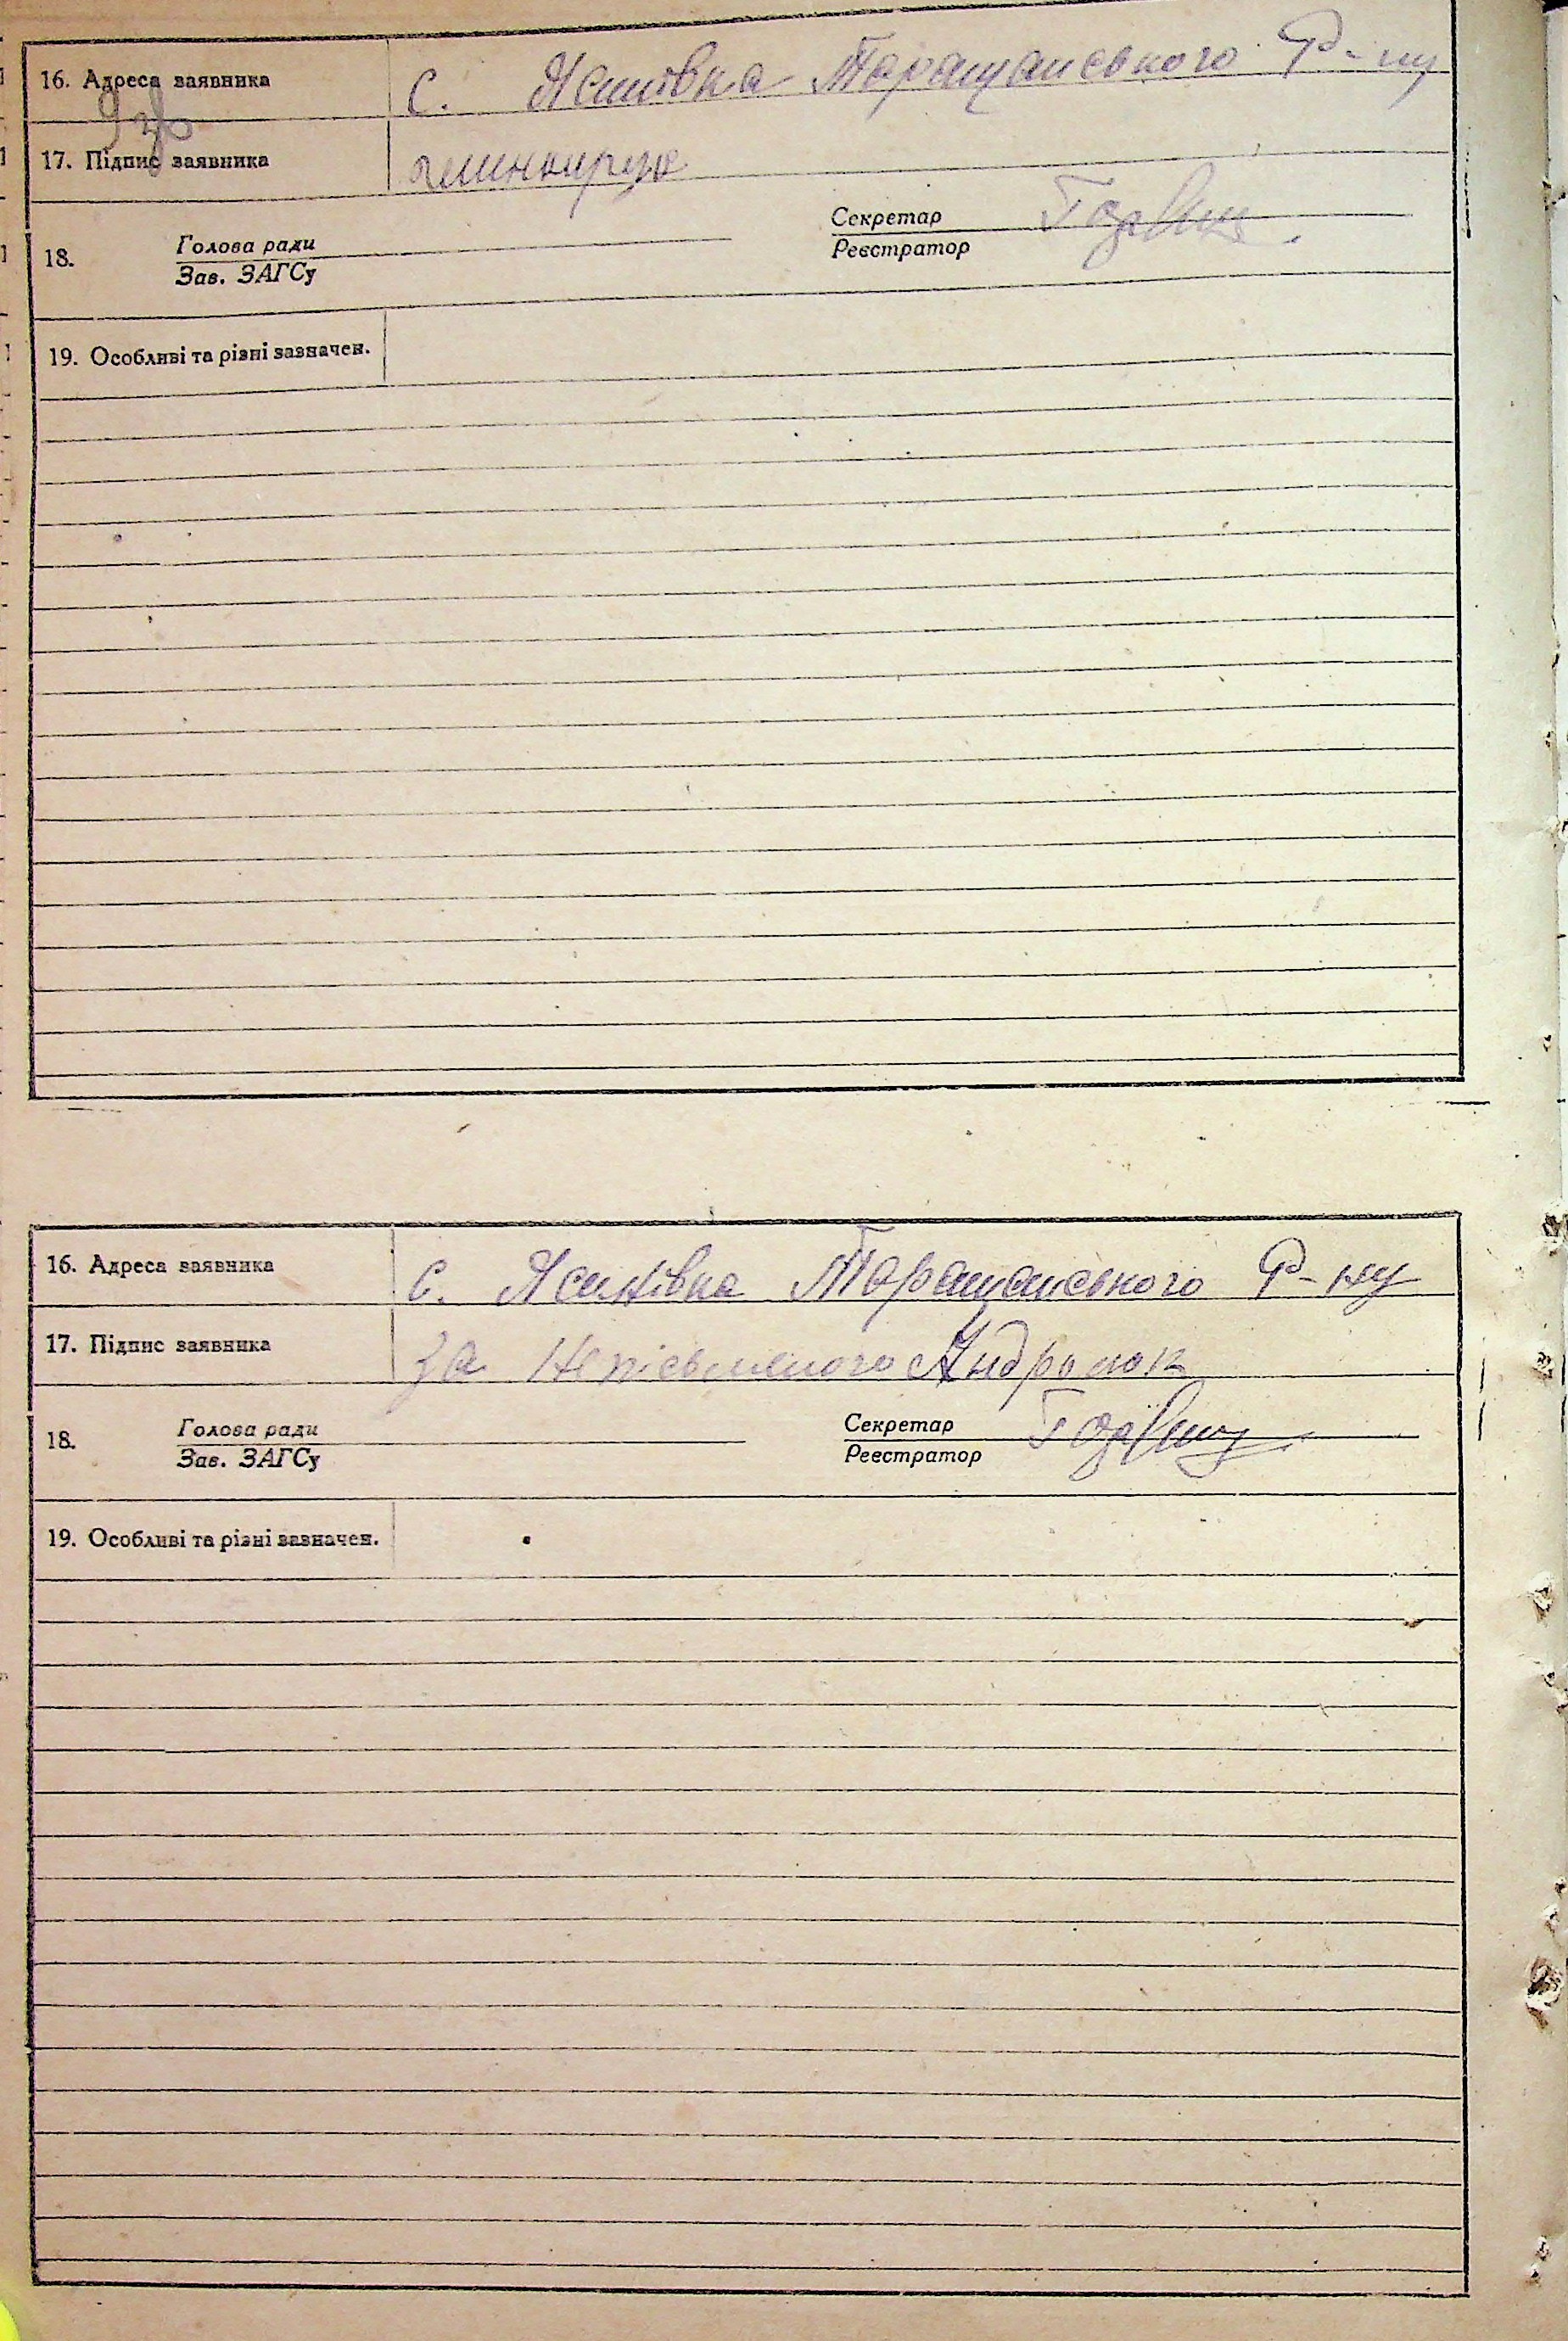 16. Адреса заявника с. Ясинівка Таращанського Р-ну
17. Підпис заявника
Секретар
Реєстратор
18. Голова ради
Зав. ЗАГСу
19. Особливі та різні зазначен.
16. Адреса заявника с. Ясинівка Таращанського Р-ну
17. Підпис заявника за непісьменого
Секретар
Реєстратор
18. Голова ради
Зав. ЗАГСу
19. Особливі та різні зазначен.